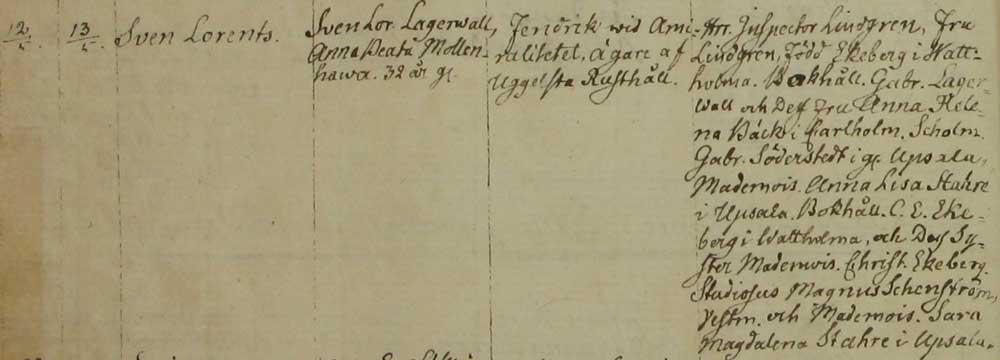 12/5. 13/5. Sven Lorents.
Sven Lor. Lagerwall,
Anna Beata Mollen-
hawa. 32 år gl.
Fendrik wid Ami-
ralitetet, ägare af
Uggelsta Rusthåll.
Hr. Inspector Lindgren, Fru
Lindgren, född Ekeberg i Watt-
holma. Bokhåll. Gabr. Lager-
wall och Dess Fru Anna Hele-
na Bäck i Carlholm. Scholm.
Gabr. Söderstedt i gl. Upsala,
Mademois. Anna Lisa Stahre
i Upsala. Bokhåll. C. E. Eke-
berg i Wattholma, och Dess Sy-
ster Mademois. Christ. Ekeberg.
Studiosus Magnus Schenström,
Vestm. och Mademois. Sara
Magdalena Stahre i Upsala.